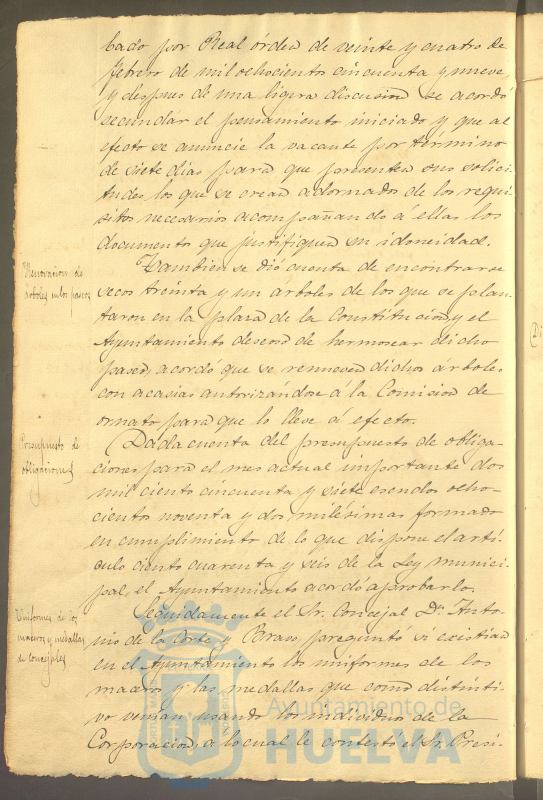 bado por Real órden de veinte y cuatro de
febrero de mil ochocientos cincuenta y nueve,
y despues de una ligera discusion se acordó
secundar el pensamiento iniciado y que al
efecto se anuncie la vacante por término
de siete dias para que presenten sus solici-
tudes los que se crean adornados de los requi-
sitos necesarios acompañando á ellas los
documento que justifiquen su idoneidad.
Renovacion de
árboles en los paseos
Tambien se dió cuenta de encontrarse
secos treinta y un árboles de los que se plan-
taron en la plaza de la Constitucion, y el
Ayuntamiento deseoso de hermosear dicho
paseo, acordó que se renueven dichos árboles
con acacias autorizándose á la Comision de
ornato para que lo lleve á efecto.
Presupuesto de
obligaciones
Dada cuenta del presupuesto de obliga-
ciones para el mes actual importante dos
mil ciento cincuenta y siete escudos ocho-
cientos noventa y dos milésimas formado
en cumplimiento de lo que dispone el artí-
culo ciento cuarenta y seis de la Ley munici-
pal, el Ayuntamiento acordó aprobarlo.
Uniformes de los
maceros y medallas
de concejales
Seguidamente el Sr. Concejal Dn. Anto-
nio de la Corte y Bravo, preguntó si existian
en el Ayuntamiento los uniformes de los
maceros y las medallas que como distinti-
vo venian usando los individuos de la
Corporacion, á lo cual le contestó el Sr. Presi-
Ayuntamiento de
HUELVA